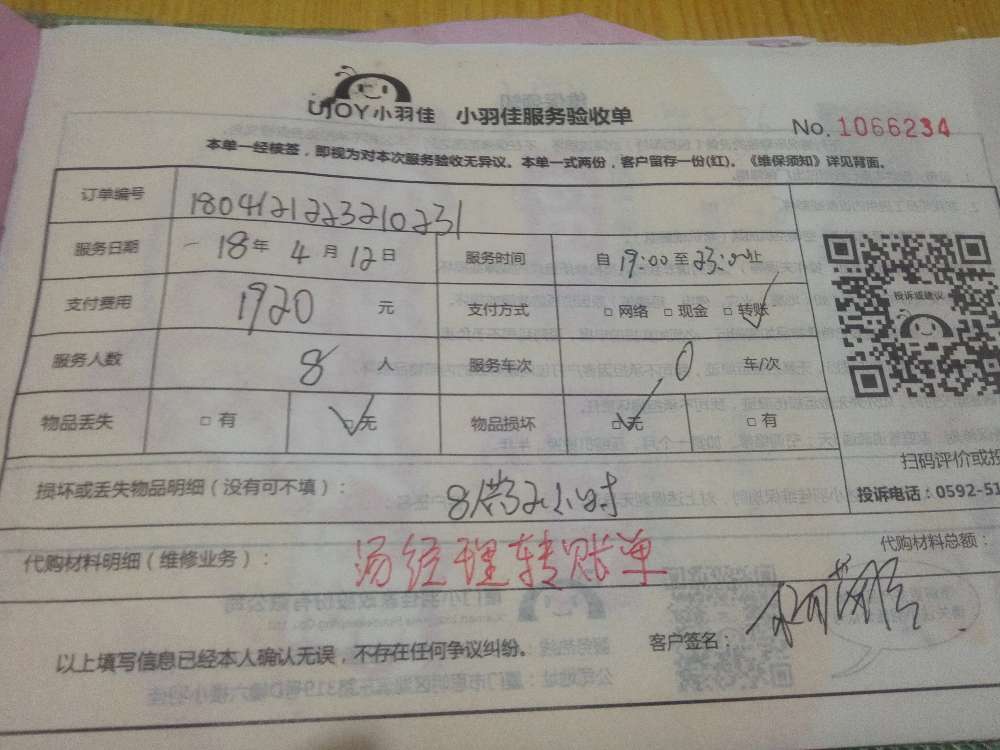 UJOY小羽佳 小羽佳服务验收单
No. 1066234
本单一经核签，即视为对本次服务验收无异议。本单一式两份，客户留存一份(红)。《维保须知》详见背面。
订单编号 180412123210231
服务日期 18年 4月 12日 服务时间 自 19:00 至 23:00 止
支付费用 1920 元 支付方式 □ 网络 □ 现金 □ 转账
服务人数 8 人 服务车次 0 车/次
物品丢失 □ 有 □ 无 物品损坏 □ 无 □ 有
投诉或建议
扫码评价或投
投诉电话：0592-51
损坏或丢失物品明细（没有可不填）： 8人 小时
代购材料明细（维修业务）： 汤经理转账单 代购材料总额：
以上填写信息已经本人确认无误，不存在任何争议纠纷。 客户签名：